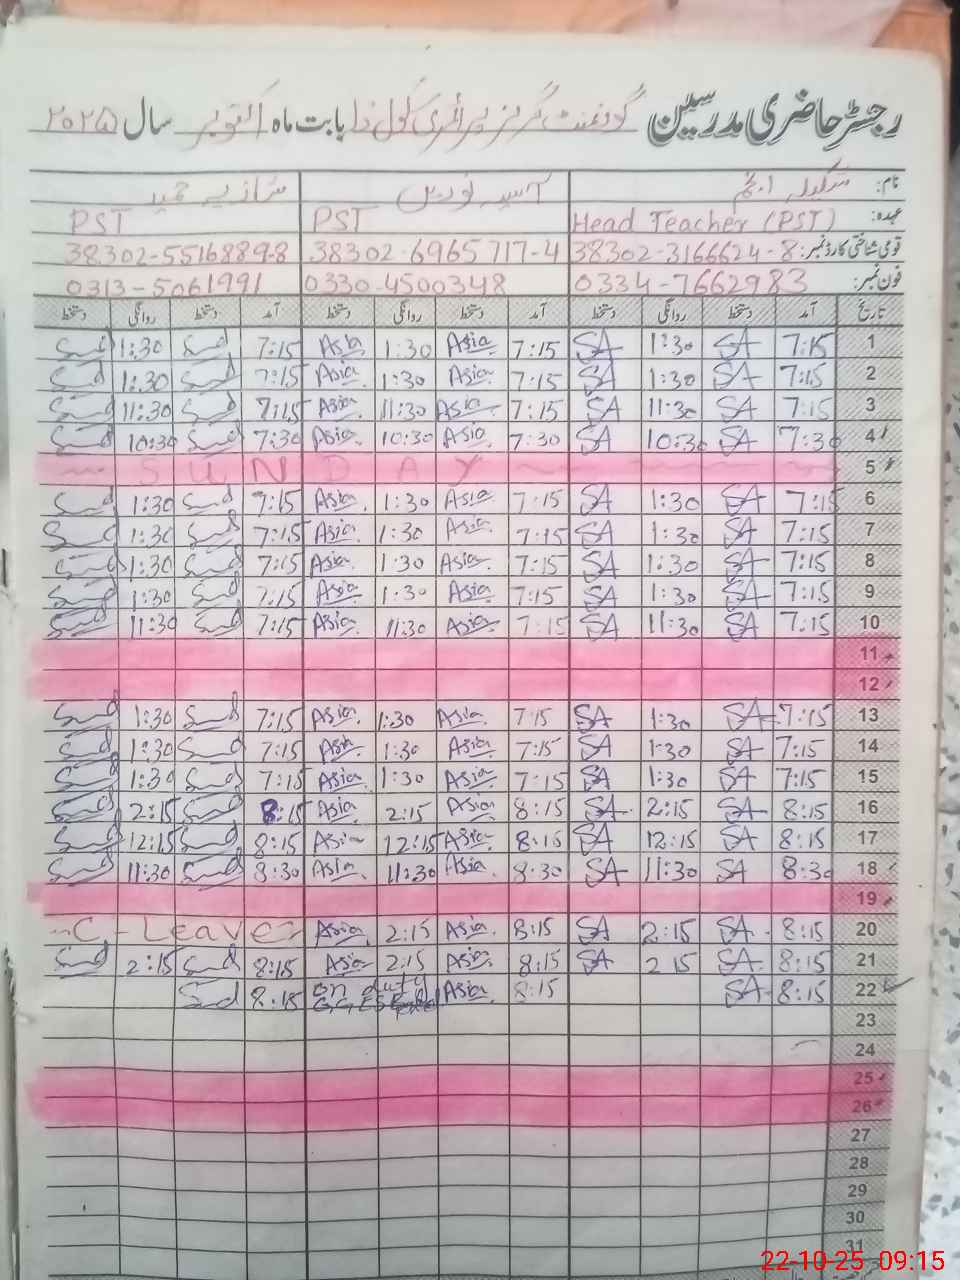 رجسٹر حاضری مدرسین گورنمنٹ گرلز پرائمری سکول بابت ماہ اکتوبر سال ۲۰۲۵
نام: شکیلہ انجم آسیہ نورین شازیہ حمید
عہدہ: Head Teacher (PST) PST PST
قومی شناختی کارڈ نمبر: 38302-3166624-8 38302-6965717-4 38302-5516889-8
فون نمبر: 0334-7662983 0330-4500348 0313-5061991
تاریخ آمد دستخط روانگی دستخط آمد دستخط روانگی دستخط آمد دستخط روانگی دستخط
1 7:15 SA 1:30 SA 7:15 Asia 1:30 Asia 7:15 1:30
2 7:15 SA 1:30 SA 7:15 Asia 1:30 Asia 7:15 1:30
3 7:15 SA 11:30 SA 7:15 Asia 11:30 Asia 7:15 11:30
4 7:30 SA 10:30 SA 7:30 Asia 10:30 Asia 7:30 10:30
5 SUNDAY
6 7:15 SA 1:30 SA 7:15 Asia 1:30 Asia 7:15 1:30
7 7:15 SA 1:30 SA 7:15 Asia 1:30 Asia 7:15 1:30
8 7:15 SA 1:30 SA 7:15 Asia 1:30 Asia 7:15 1:30
9 7:15 SA 1:30 SA 7:15 Asia 1:30 Asia 7:15 1:30
10 7:15 SA 11:30 SA 7:15 Asia 11:30 Asia 7:15 11:30
11
12
13 7:15 SA 1:30 SA 7:15 Asia 1:30 Asia 7:15 1:30
14 7:15 SA 1:30 SA 7:15 Asia 1:30 Asia 7:15 1:30
15 7:15 SA 1:30 SA 7:15 Asia 1:30 Asia 7:15 1:30
16 8:15 SA 2:15 SA 8:15 Asia 2:15 Asia 8:15 2:15
17 8:15 SA 12:15 SA 8:15 Asia 12:15 Asia 8:15 12:15
18 8:30 SA 11:30 SA 8:30 Asia 11:30 Asia 8:30 11:30
19
20 8:15 SA 2:15 SA 8:15 Asia 2:15 Asia C-Leave
21 8:15 SA 2 15 SA 8:15 Asia 2:15 Asia 8:15 2:15
22 8:15 SA 8:15 Asia on duty 8:15
23
24
25
26
27
28
29
30
31
22-10-25 09:15